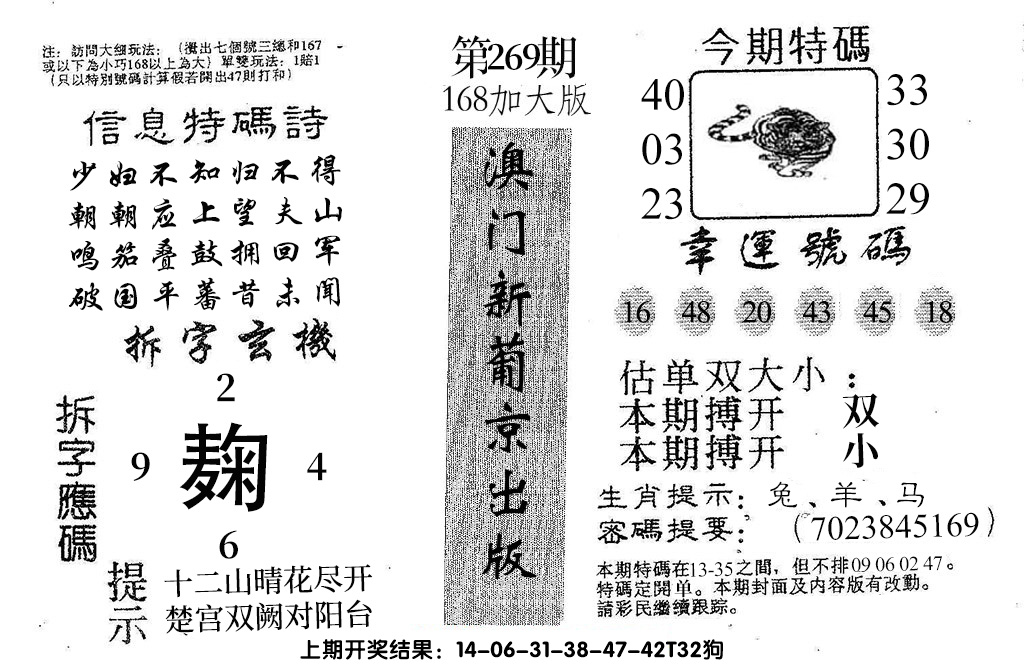 注：訪問大細玩法：（攪出七個號三總和167
或以下為小巧168以上為大）單雙玩法：1賠1
（只以特別號碼計算假若開出47則打和）
信息特碼詩
少妇不知归不得
朝朝应上望夫山
鸣笳叠鼓拥回军
破国平蕃昔未闻
拆字玄機
拆字應碼
2
9 麹 4
6
提示
十二山晴花尽开
楚宫双阙对阳台
第269期
168加大版
澳门新葡京出版
今期特碼
40 33
03 30
23 29
幸運號碼
16 48 20 43 45 18
估单双大小：
本期搏开 双
本期搏开 小
生肖提示：兔、羊、马
密碼提要：（7023845169）
本期特碼在13-35之間，但不排09 06 02 47。
特碼定開单。本期封面及内容版有改動。
請彩民繼續跟踪。
上期开奖结果：14-06-31-38-47-42T32狗